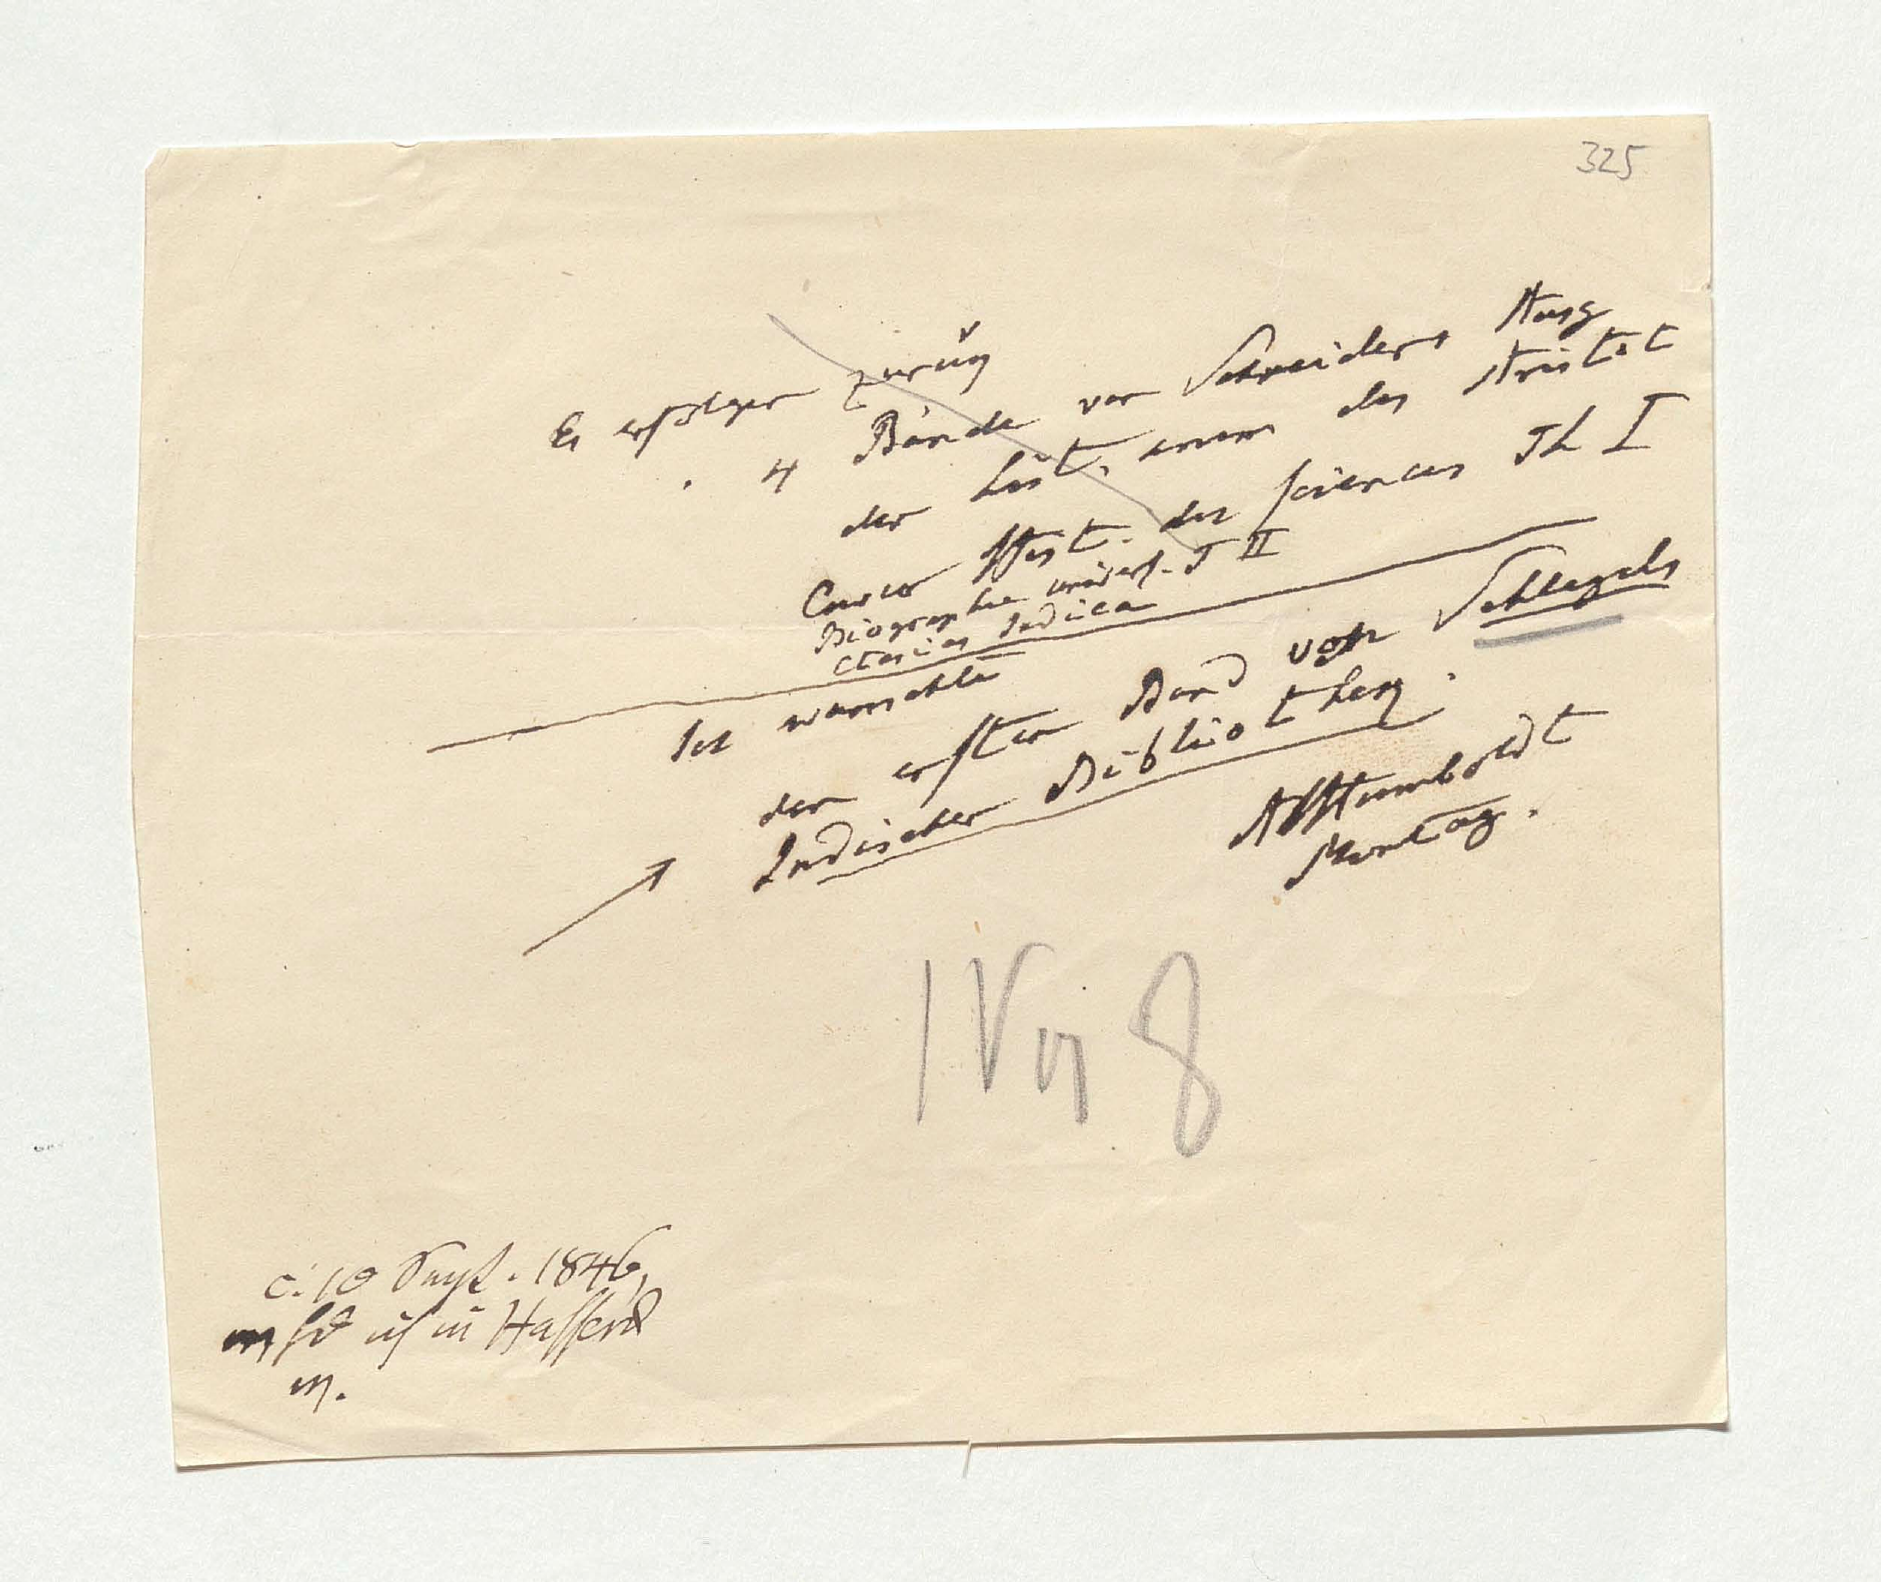 325
Es erfolgen zurük
4 Bände von Schneiders Ausg
der hist. anim des Aristot
Cuvier Hist. des sciences Th I
Biographie univers. T II
Ctesias Indica
Ich wünschte
den ersten Band von Schlegels
Indischer Bibliothek.
AvHumboldt
Montag.
c. 10 Sept. 1846,